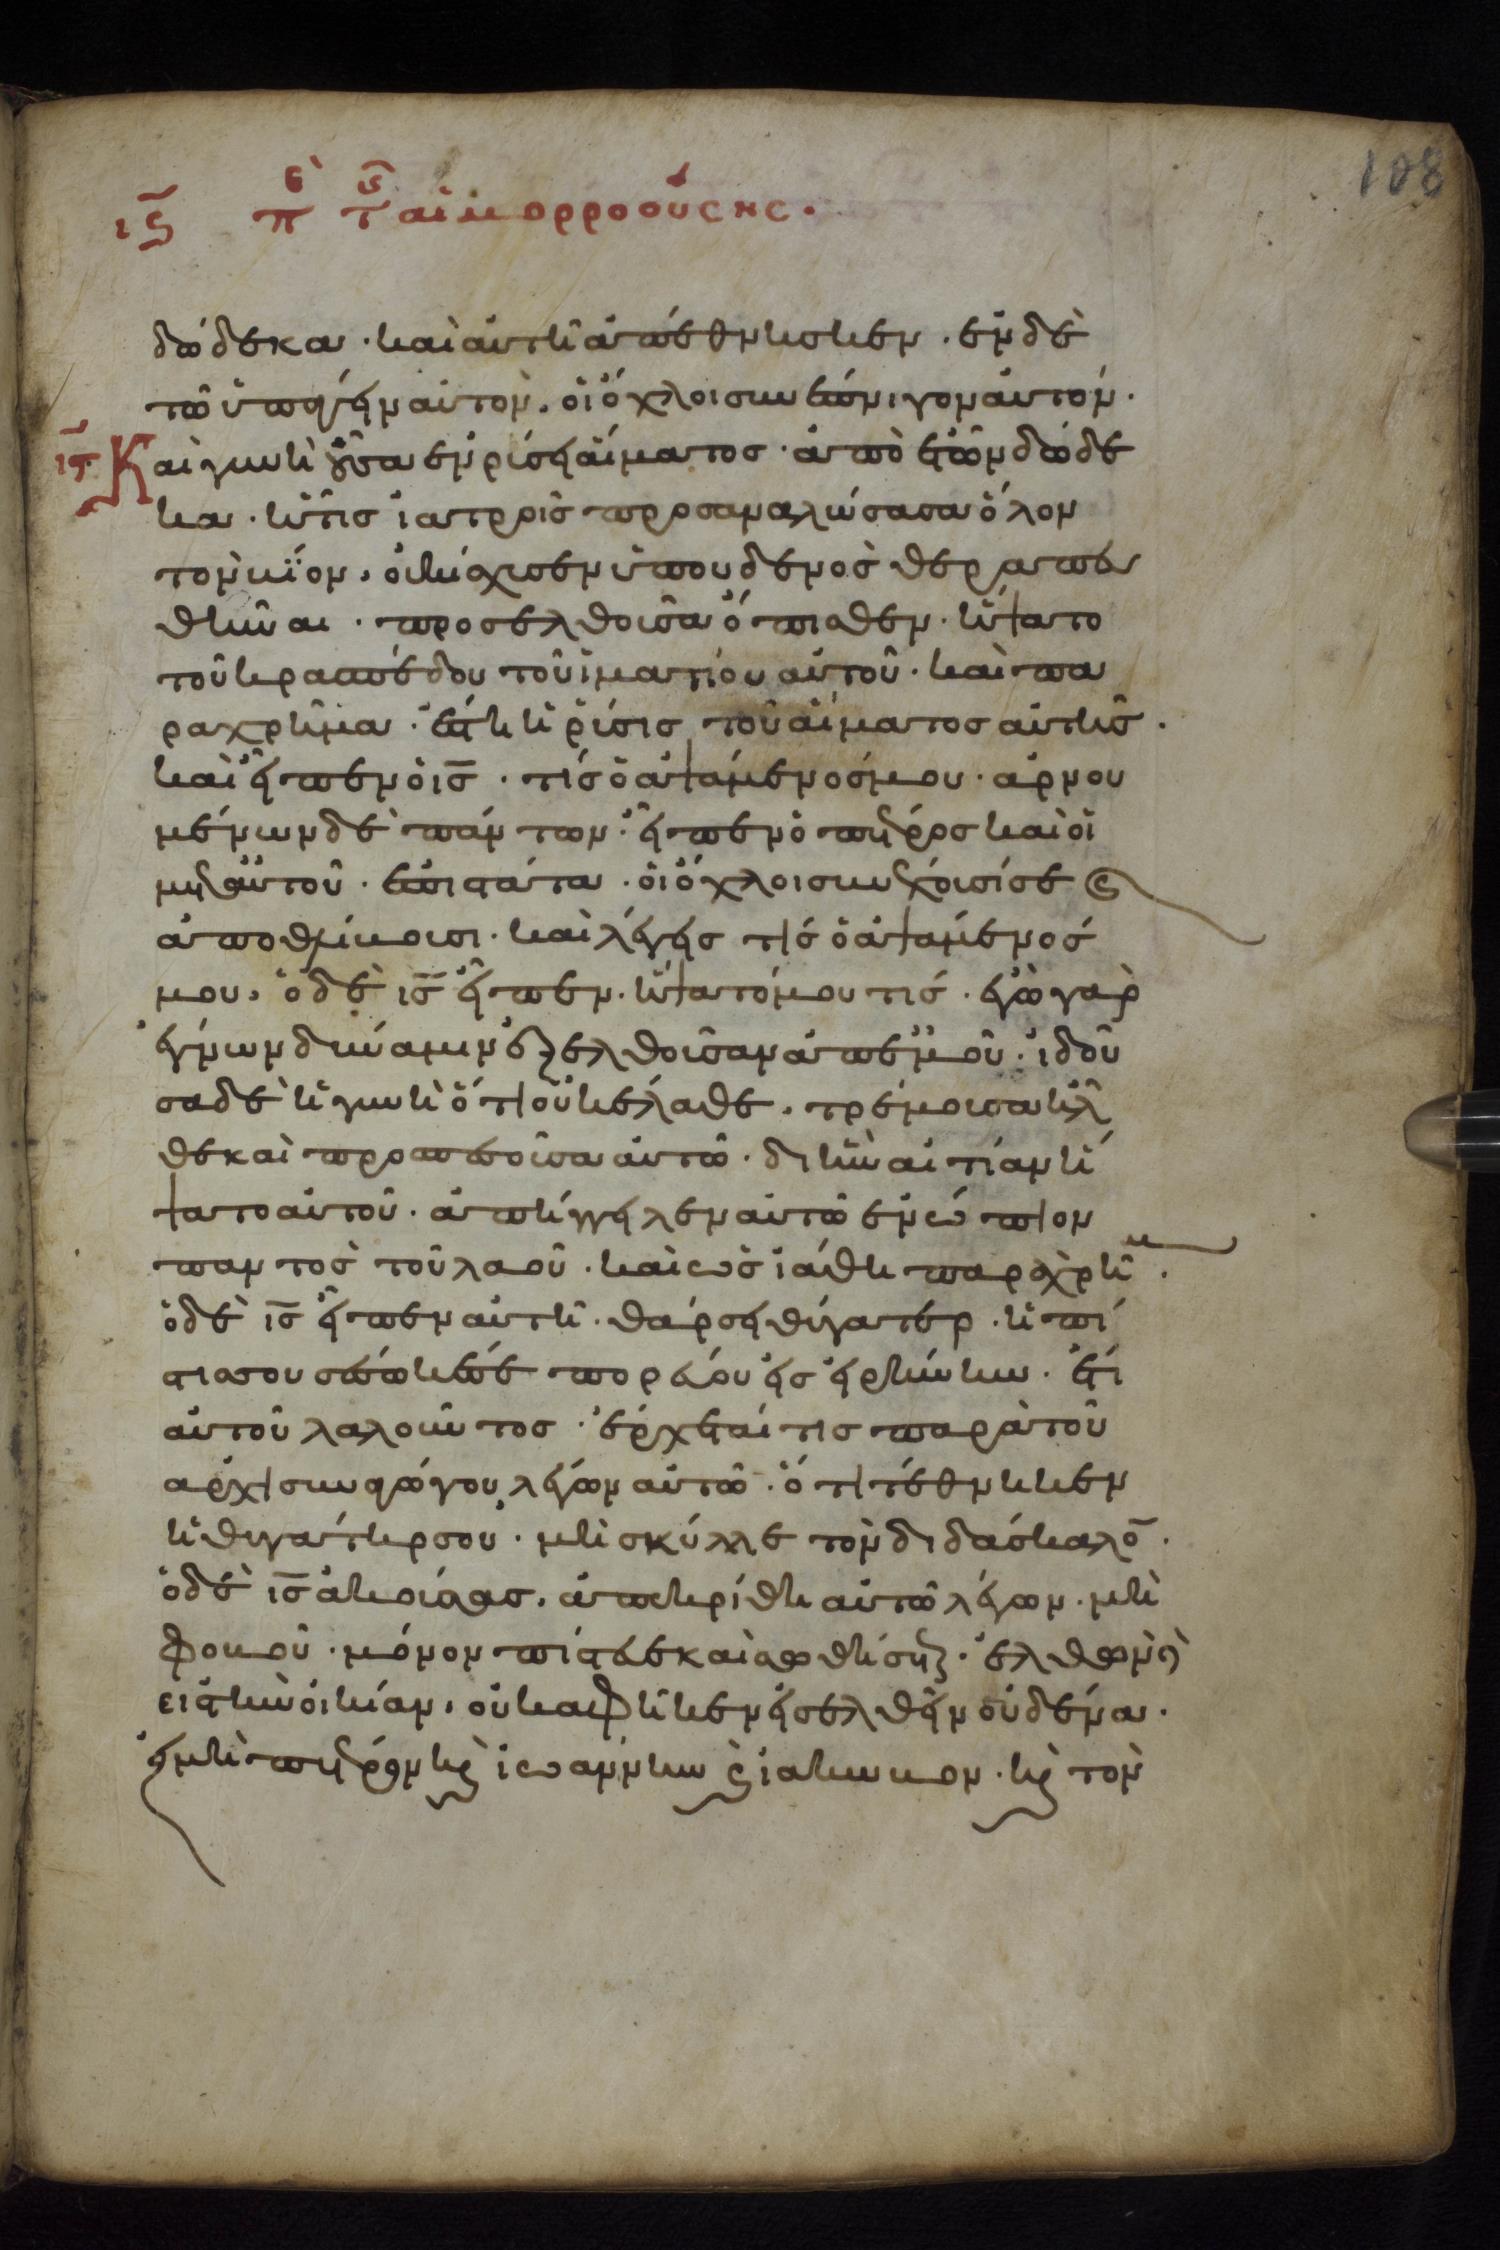 108
ιϛ πε τς αἱμορροούσης.
δώδεκα· καὶ αὐτὴ ἀπέθνησκεν. ἐν δὲ
τῶ ὑπάγειν αὐτὸν, οἱ ὄχλοι συνέπνιγον αὐτόν.
ιϛ Καὶ γυνὴ οὖσα ἐν ῥύσει αἵματος· ἀπὸ ἐτῶν δώδε
κα· ἥτις ἰατροῖς προσαναλώσασα ὅλον
τὸν βίον, οὐκ ἴσχυσεν ὑπ' οὐδενὸς θεραπευ
θῆναι· προσελθοῦσα ὄπισθεν· ἥψατο
τοῦ κρασπέδου τοῦ ἱματίου αὐτοῦ· καὶ πα
ραχρῆμα ἔστη ἡ ῥύσις τοῦ αἵματος αὐτῆς.
καὶ εἶπεν ὁ ις· τίς ὁ ἁψάμενός μου· ἀρνου
μένων δὲ πάντων· εἶπεν ὁ πέτρος καὶ οἱ
μετ' αὐτοῦ· ἐπιστάτα· οἱ ὄχλοι συνέχουσί σε καὶ
ἀποθλίβουσι· καὶ λέγεις τίς ὁ ἁψάμενός
μου, ὁ δὲ ις εἶπεν· ἥψατό μου τίς· ἐγὼ γὰρ
ἔγνων δύναμιν ἐξελθοῦσαν ἀπ' ἐμοῦ· ἰδοῦ
σα δὲ ἡ γυνὴ ὅτι οὐκ ἔλαθε, τρέμουσα ἦλ
θε καὶ προσπεσοῦσα αὐτῶ· δι' ἣν αἰτίαν ἥ
ψατο αὐτοῦ· ἀπήγγειλεν αὐτῶ ἐνώπιον
παντὸς τοῦ λαοῦ· καὶ ὡς ἰάθη παραχρῆμ.
ὁ δὲ ις εἶπεν αὐτῆ· θάρσει θύγατερ· ἡ πί
στις σου σέσωκέ σε πορεύου εἰς εἰρήνην· ἔτι
αὐτοῦ λαλοῦντος· ἔρχεταί τις παρὰ τοῦ
ἀρχισυναγώγου λέγων αὐτῶ· ὅτι τέθνηκεν
ἡ θυγάτηρ σου· μὴ σκύλλε τὸν διδάσκαλο̄.
ὁ δὲ ις ἀκούσας, ἀπεκρίθη αὐτῶ λέγων· μὴ
φοβοῦ· μόνον πίστευε καὶ σωθήσεται· ἐλθὼν δὲ
εἰς τὴν οἰκίαν, οὐκ ἀφῆκεν εἰσελθεῖν οὐδένα·
εἰ μὴ πέτρον κ̀ ἰωάννην κ̀ ἰάκωβον· κ̀ τὸν